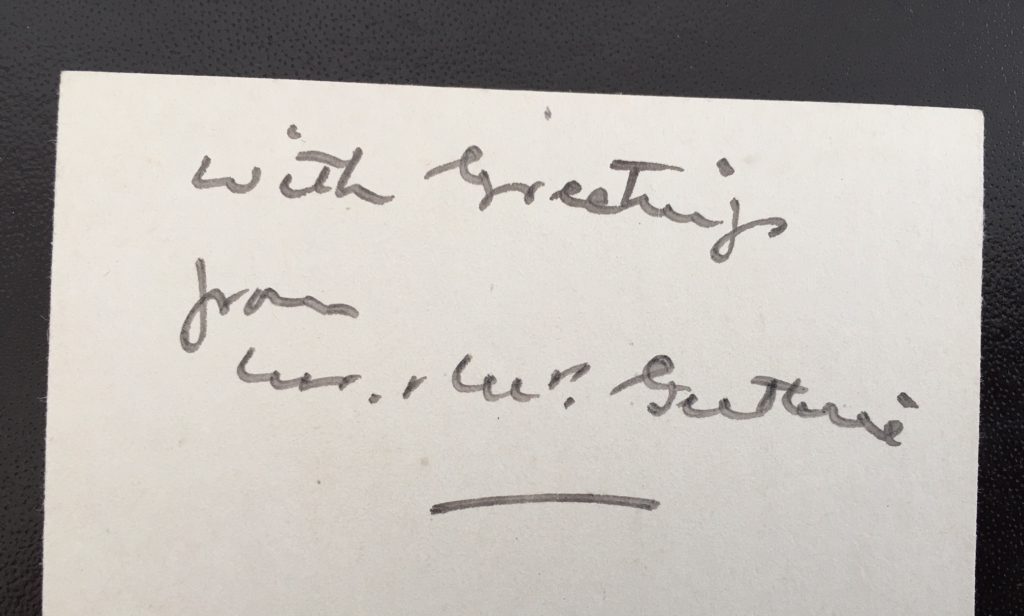 with Greetings
from
Mr. & Mrs. Guthrie